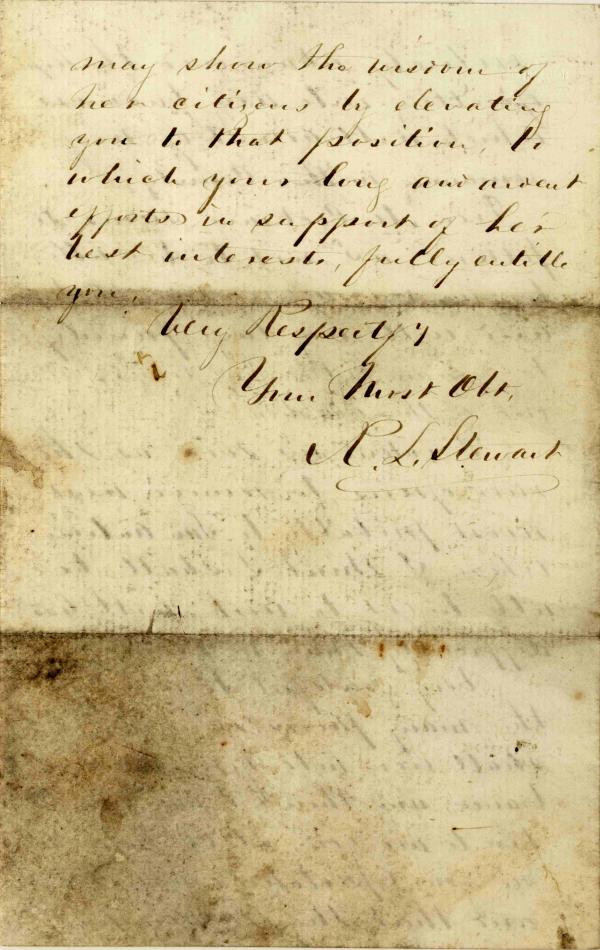 may show the wisdom of
her citizens by elevating
you to that position, to
which your long and ardent
efforts in support of her
best interests, fully entitle
you.
Very Respectfy
Your Most Obt,
R. L. Stewart